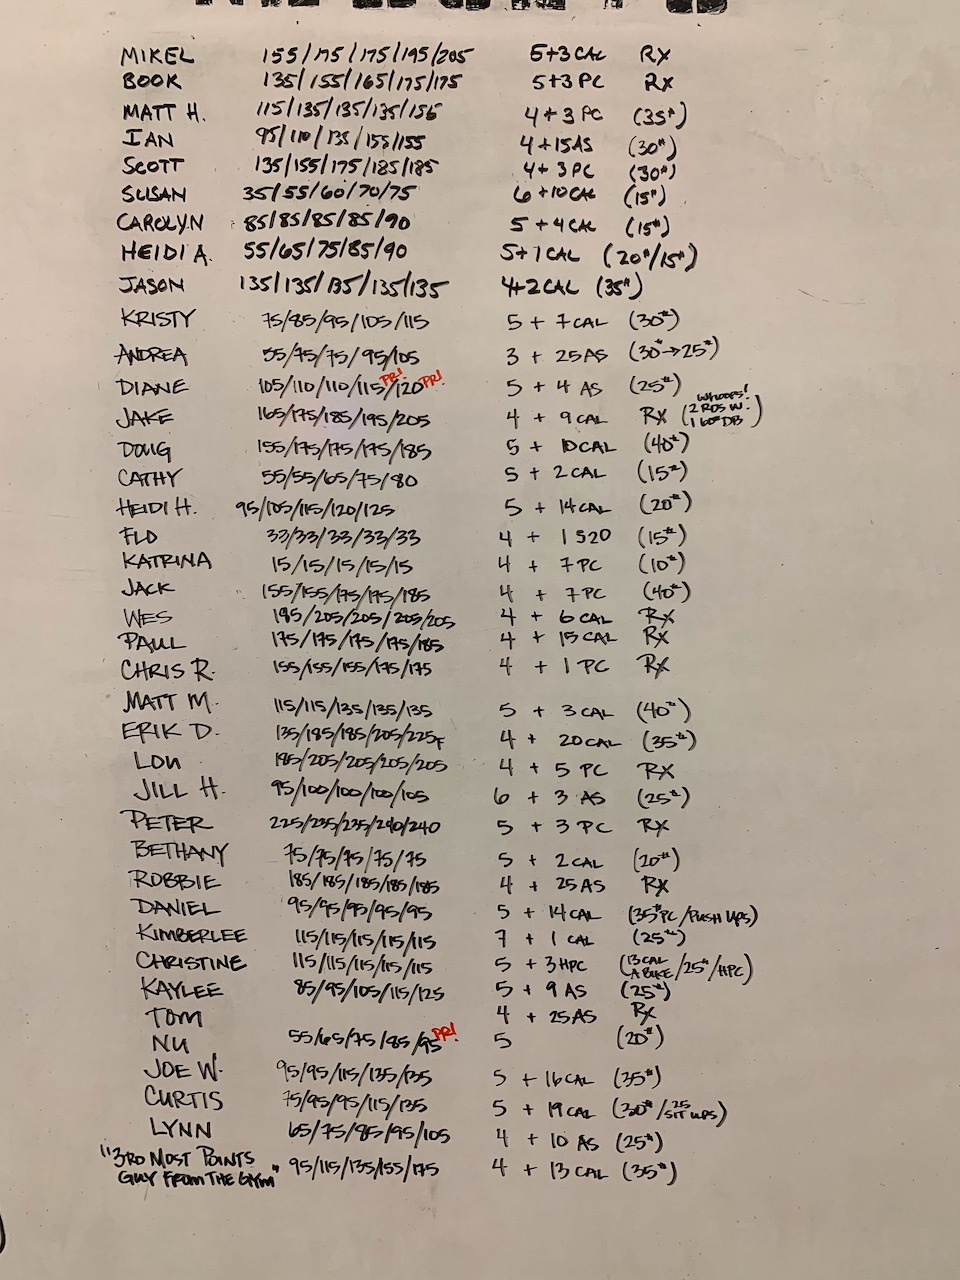 MIKEL 155/175/175/195/205 5+3 CAL RX
BOOK 135/155/165/175/175 5+3 PC RX
MATT H. 115/135/135/135/155 4+3 PC (35#)
IAN 95/110/135/155/155 4+15AS (30#)
SCOTT 135/155/175/185/185 4+3 PC (30#)
SUSAN 35/55/60/70/75 6+10 CAL (15#)
CAROLYN 85/85/85/85/90 5+4 CAL (15#)
HEIDI A. 55/65/75/85/90 5+1 CAL (20#/15#)
JASON 135/135/135/135/135 4+2 CAL (35#)
KRISTY 75/85/95/105/115 5 + 7 CAL (30#)
ANDREA 55/75/75/95/105 3 + 25 AS (30#→25#)
DIANE 105/110/110/115 PR!/120 PR! 5 + 4 AS (25#)
JAKE 165/175/185/195/205 4 + 9 CAL RX (WHOOPS! 2 RDS W. 1 60# DB)
DOUG 155/175/175/175/185 5 + 10 CAL (40#)
CATHY 55/55/65/75/80 5 + 2 CAL (15#)
HEIDI H. 95/105/115/120/125 5 + 14 CAL (20#)
FLO 33/33/33/33/33 4 + 1 S20 (15#)
KATRINA 15/15/15/15/15 4 + 7 PC (10#)
JACK 155/155/175/175/185 4 + 7 PC (40#)
WES 195/205/205/205/205 4 + 6 CAL RX
PAUL 175/175/175/175/185 4 + 15 CAL RX
CHRIS R. 155/155/155/175/175 4 + 1 PC RX
MATT M. 115/115/135/135/135 5 + 3 CAL (40#)
ERIK D. 135/185/185/205/225F 4 + 20 CAL (35#)
LOU 185/205/205/205/205 4 + 5 PC RX
JILL H. 95/100/100/100/105 6 + 3 AS (25#)
PETER 225/235/235/240/240 5 + 3 PC RX
BETHANY 75/75/75/75/75 5 + 2 CAL (20#)
ROBBIE 185/185/185/185/185 4 + 25 AS RX
DANIEL 95/95/95/95/95 5 + 14 CAL (35# PC/PUSH UPS)
KIMBERLEE 115/115/115/115/115 7 + 1 CAL (25#)
CHRISTINE 115/115/115/115/115 5 + 3 HPC (13 CAL A BIKE/25#/HPC)
KAYLEE 85/95/105/115/125 5 + 9 AS (25#)
TOM 4 + 25 AS RX
NU 55/65/75/85/95 PR! 5 (20#)
JOE W. 95/95/115/135/135 5 + 16 CAL (35#)
CURTIS 75/95/95/115/135 5 + 19 CAL (30#/25 SIT UPS)
LYNN 65/75/85/95/105 4 + 10 AS (25#)
"3RD MOST POINTS
GUY FROM THE GYM" 95/115/135/155/175 4 + 13 CAL (35#)